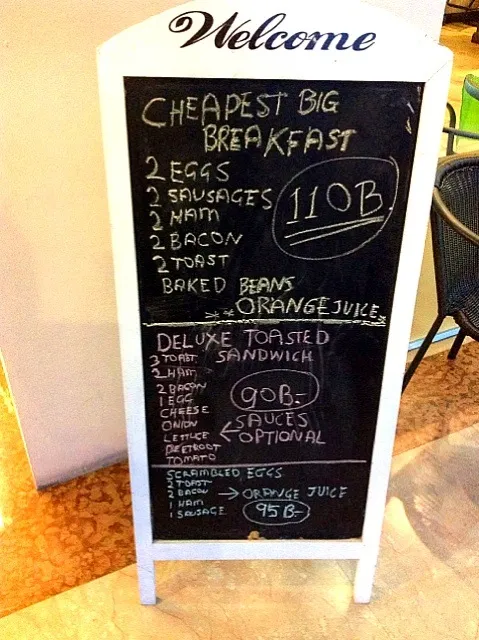 Welcome
CHEAPEST BIG
BREAKFAST
2 EGGS
2 SAUSAGES
2 HAM
2 BACON
2 TOAST
110B.
BAKED BEANS
** ORANGE JUICE
DELUXE TOASTED
SANDWICH
3 TOAST
2 HAM
2 BACON
1 EGG
CHEESE
ONION
LETTUCE
BEETROOT
TOMATO
90B.-
SAUCES
OPTIONAL
SCRAMBLED EGGS
2 TOAST
2 BACON
1 HAM
1 SAUSAGE
→ ORANGE JUICE
95B-